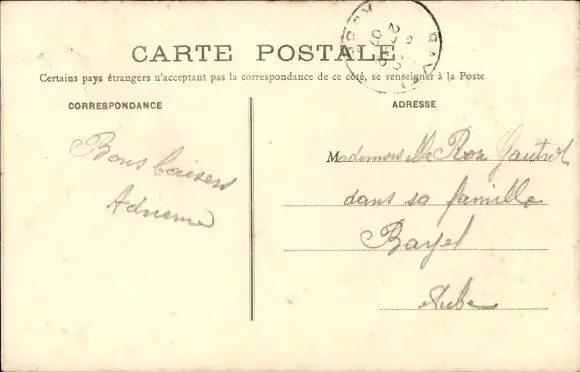 CARTE POSTALE
Certains pays étrangers n'acceptant pas la correspondance de ce côté, se renseigner à la Poste
CORRESPONDANCE
ADRESSE
Bons baisers
Mademoiselle Roz Gautrot
dans sa famille
Bayel
Aube